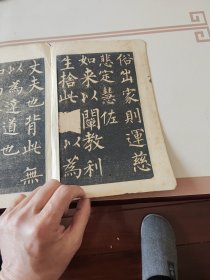 俗出家則運慈
悲定慧佐
如来以闡教利
生捨此以為
丈夫也背此無
以為達道也